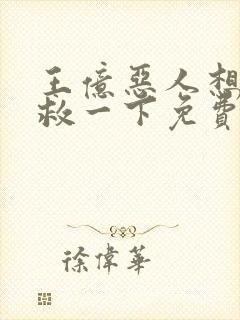 王億惡人想
救一下免費
徐偉華